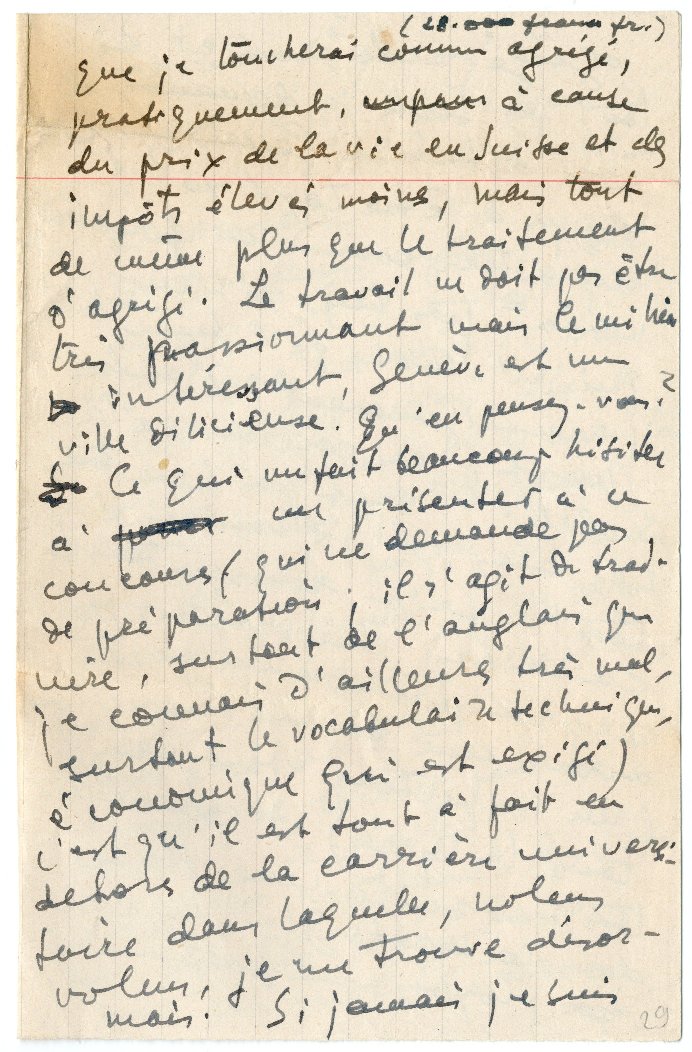 (28.000 francs fr.)
que je toucherai comme agrégé,
pratiquement, à cause
du prix de la vie en Suisse et des
impôts élevés moins, mais tout
de même plus que le traitement
d'agrégé. Le travail ne doit pas être
très passionnant mais le milieu
intéressant, Genève est une
ville délicieuse. Qu'en pensez-vous?
Ce qui me fait beaucoup hésiter
à me présenter à ce
concours (qui ne demande pas
de préparation, il s'agit de trad-
uire, surtout de l'anglais que
je connais d'ailleurs très mal,
surtout le vocabulaire technique,
économique qui est exigé)
c'est qu'il est tout à fait en
dehors de la carrière universi-
taire dans laquelle, nolens
volens, je me trouve désor-
mais. Si jamais je suis
29